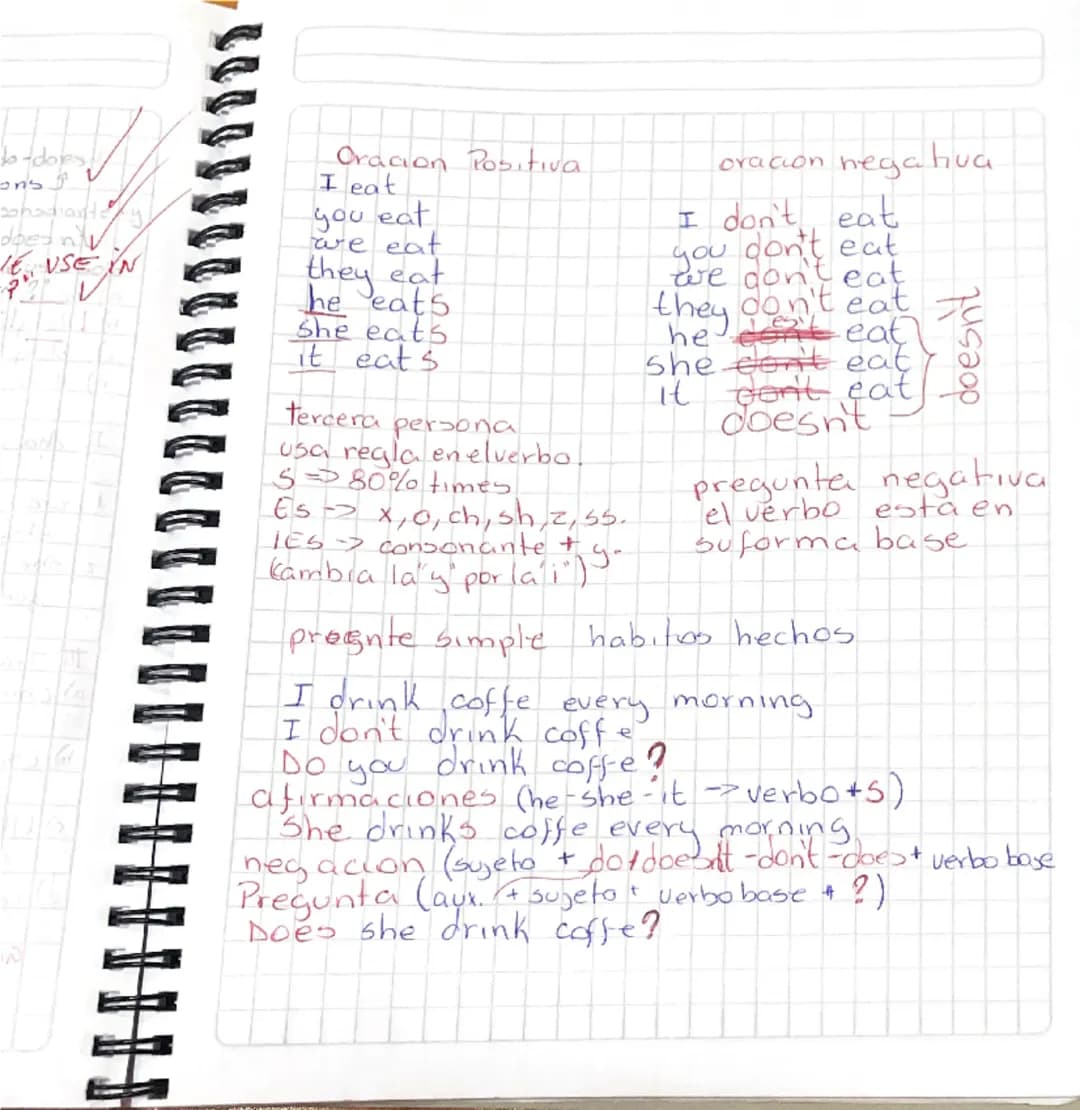 Oracion Positiva
I eat
you eat
we eat
they eat
he eats
she eats
it eats
oracion negativa
I don't eat
you don't eat
we don't eat
they don't eat
he don't eat
she don't eat
it don't eat
doesn't
doesn't
tercera persona
usa regla en el verbo.
S => 80% times
Es -> x, o, ch, sh, z, ss.
IES -> consonante + y.
(cambia la "y" por la "i")
pregunta negativa
el verbo esta en
su forma base
presente simple habitos hechos
I drink coffe every morning
I don't drink coffe
Do you drink coffe?
afirmaciones (he-she-it -> verbo+s)
She drinks coffe every morning
negacion (sujeto + do/doesn't -don't -does + verbo base
Pregunta (aux. + sujeto + verbo base + ?)
Does she drink coffe?
USE IN